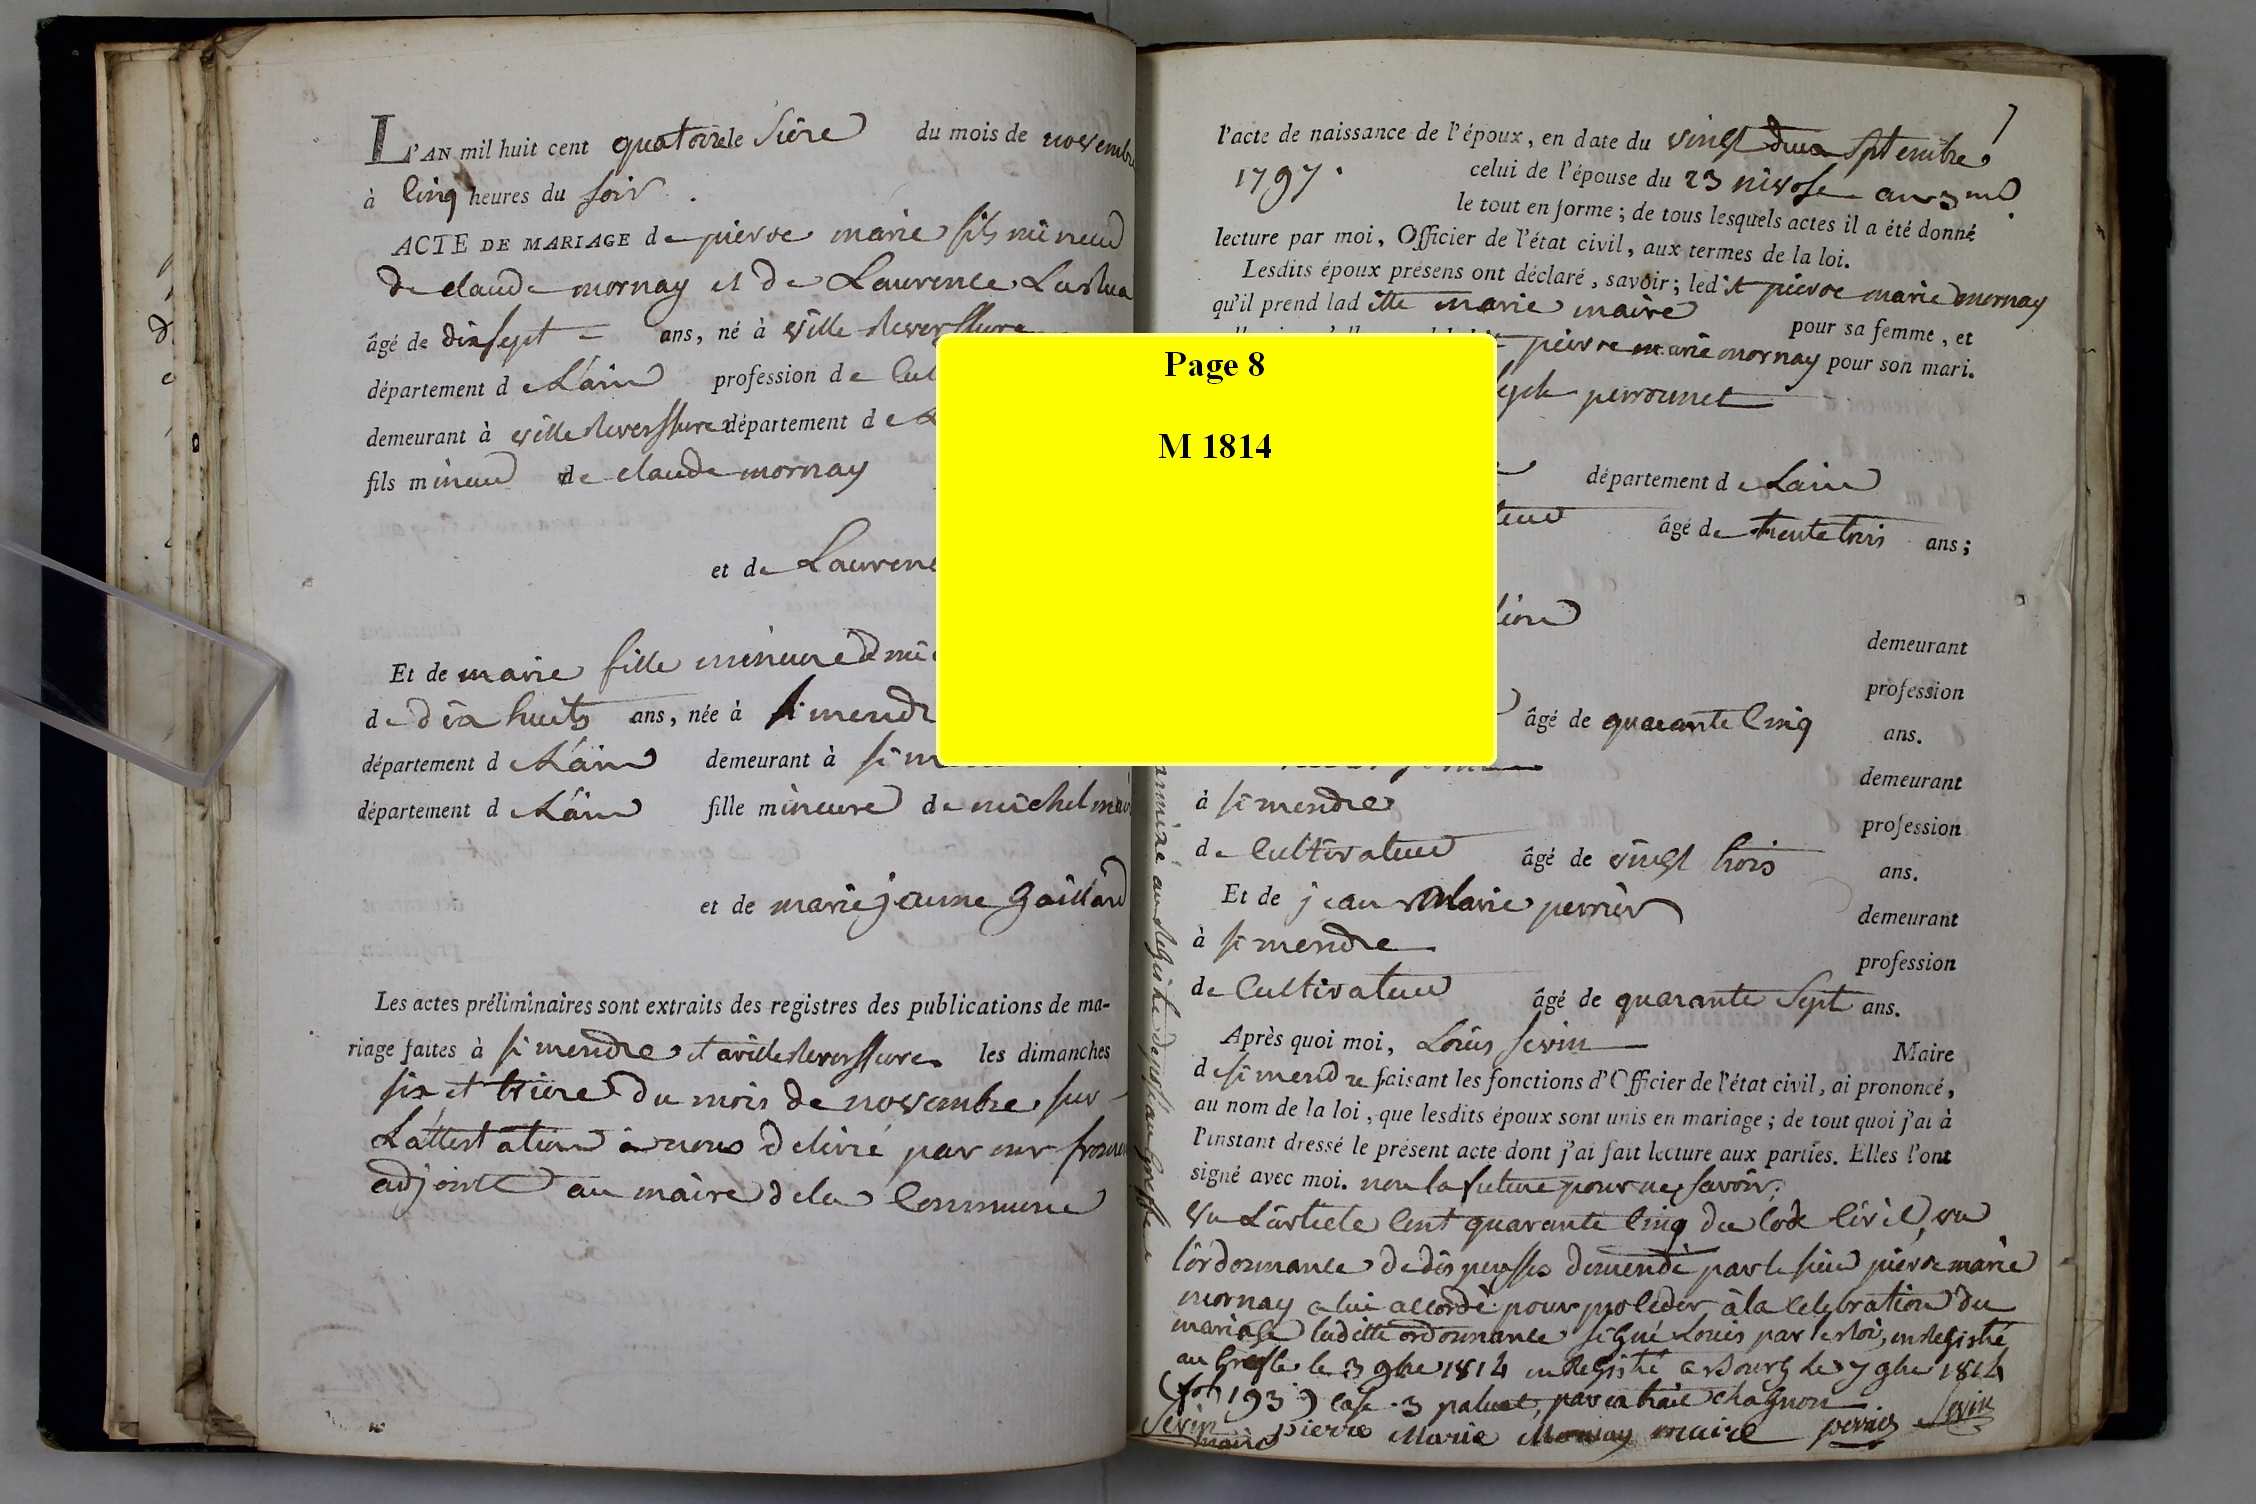 L'AN mil huit cent quatorze le Sieze du mois de novembre
à Cinq heures du soir
ACTE DE MARIAGE de pierre marie fils mineur
de claude mornay et de Laurence
âgé de dix sept ans, né à ville
département de L'ain profession de
demeurant à ville département de
fils mineur de claude mornay
et de
Et de marie fille mineure
de dix huits ans, née à
département de L'ain demeurant à
département de L'ain fille mineure de michel
et de marie jeanne gaillard
Les actes préliminaires sont extraits des registres des publications de ma-
riage faites à simendre et a les dimanches
six et trieze du mois de novembre sur
L'attestation a nous delivré par mr
adjoint au maire de la Commune
7
l'acte de naissance de l'époux, en date du vingt deux Septembre
1797. celui de l'épouse du 23 nivose an 3 me
le tout en forme; de tous lesquels actes il a été donné
lecture par moi, Officier de l'état civil, aux termes de la loi.
Lesdits époux présens ont déclaré, savoir; ledit pierre marie mornay
qu'il prend laditte marie maire pour sa femme, et
pierre marie mornay pour son mari.
perrounet
département de Lain
âgé de trente trois ans;
demeurant
profession
âgé de quarante Cinq ans.
demeurant
à simendre
profession
de Cultivateur âgé de vingt trois ans.
Et de jean Marie perrier demeurant
à simendre
profession
de Cultivateur âgé de quarante Sept ans.
Après quoi moi, Louis sevin Maire
de simendre faisant les fonctions d'Officier de l'état civil, ai prononcé,
au nom de la loi, que lesdits époux sont unis en mariage; de tout quoi j'ai à
l'instant dressé le présent acte dont j'ai fait lecture aux parties. Elles l'ont
signé avec moi. non la future pour ne savoir.
vu L'article Cent quarante Cinq du Code Civil, vu
l'ordonnance de dispensses demendé par le sieur pierre marie
mornay a lui accordé pour proceder à la Celebration du
mariage laditte ordonnance signé Louis par le Roi, enregistré
au Greffe le 3 9bre 1814 enregistré a Bourg le 7 9bre 1814
(fol 193) Case 3
Sevin pierre Marie Mornay maire perrier Sevin
maire
Page 8
M 1814